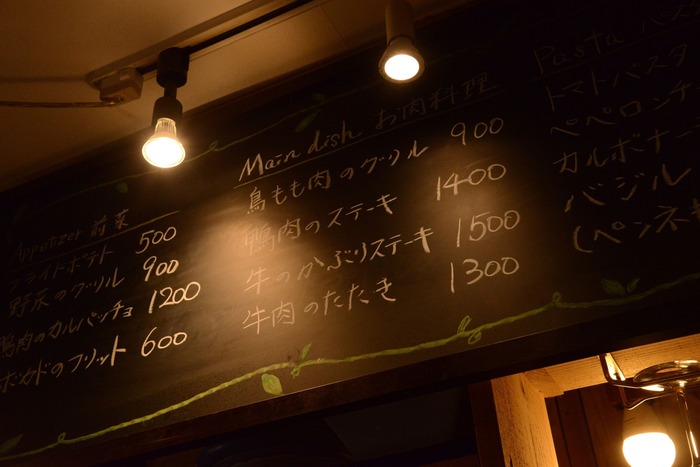 Appetizer 前菜
フライドポテト 500
野菜のグリル 900
鴨肉のカルパッチョ 1200
ボカドのフリット 600
Main dish お肉料理
鳥もも肉のグリル 900
鴨肉のステーキ 1400
牛のかぶりステーキ 1500
牛肉のたたき 1300
Pasta パス
トマトパスタ
ペペロンチ
カルボナー
バジル
(ペンネ